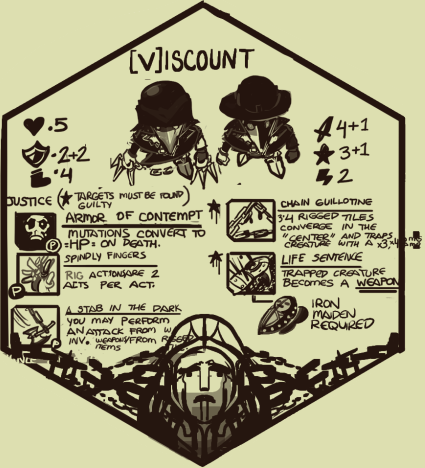 [V]ISCOUNT
·5
·2+2
·4
4+1
3+1
2
JUSTICE (★ TARGETS MUST BE FOUND)
GUILTY
ARMOR OF CONTEMPT
MUTATIONS CONVERT TO
=HP= ON DEATH.
P
SPINDLY FINGERS
RIG ACTIONS ARE 2
ACTS PER ACT.
P
A STAB IN THE DARK
YOU MAY PERFORM
AN ATTACK FROM
INV. WEAPON/FROM RIGGED
ITEMS
P
CHAIN GUILLOTINE
3·4 RIGGED TILES
CONVERGE IN THE
"CENTER" AND TRAPS
CREATURE WITH A
LIFE SENTENCE
TRAPPED CREATURE
BECOMES A WEAPON
IRON
MAIDEN
REQUIRED